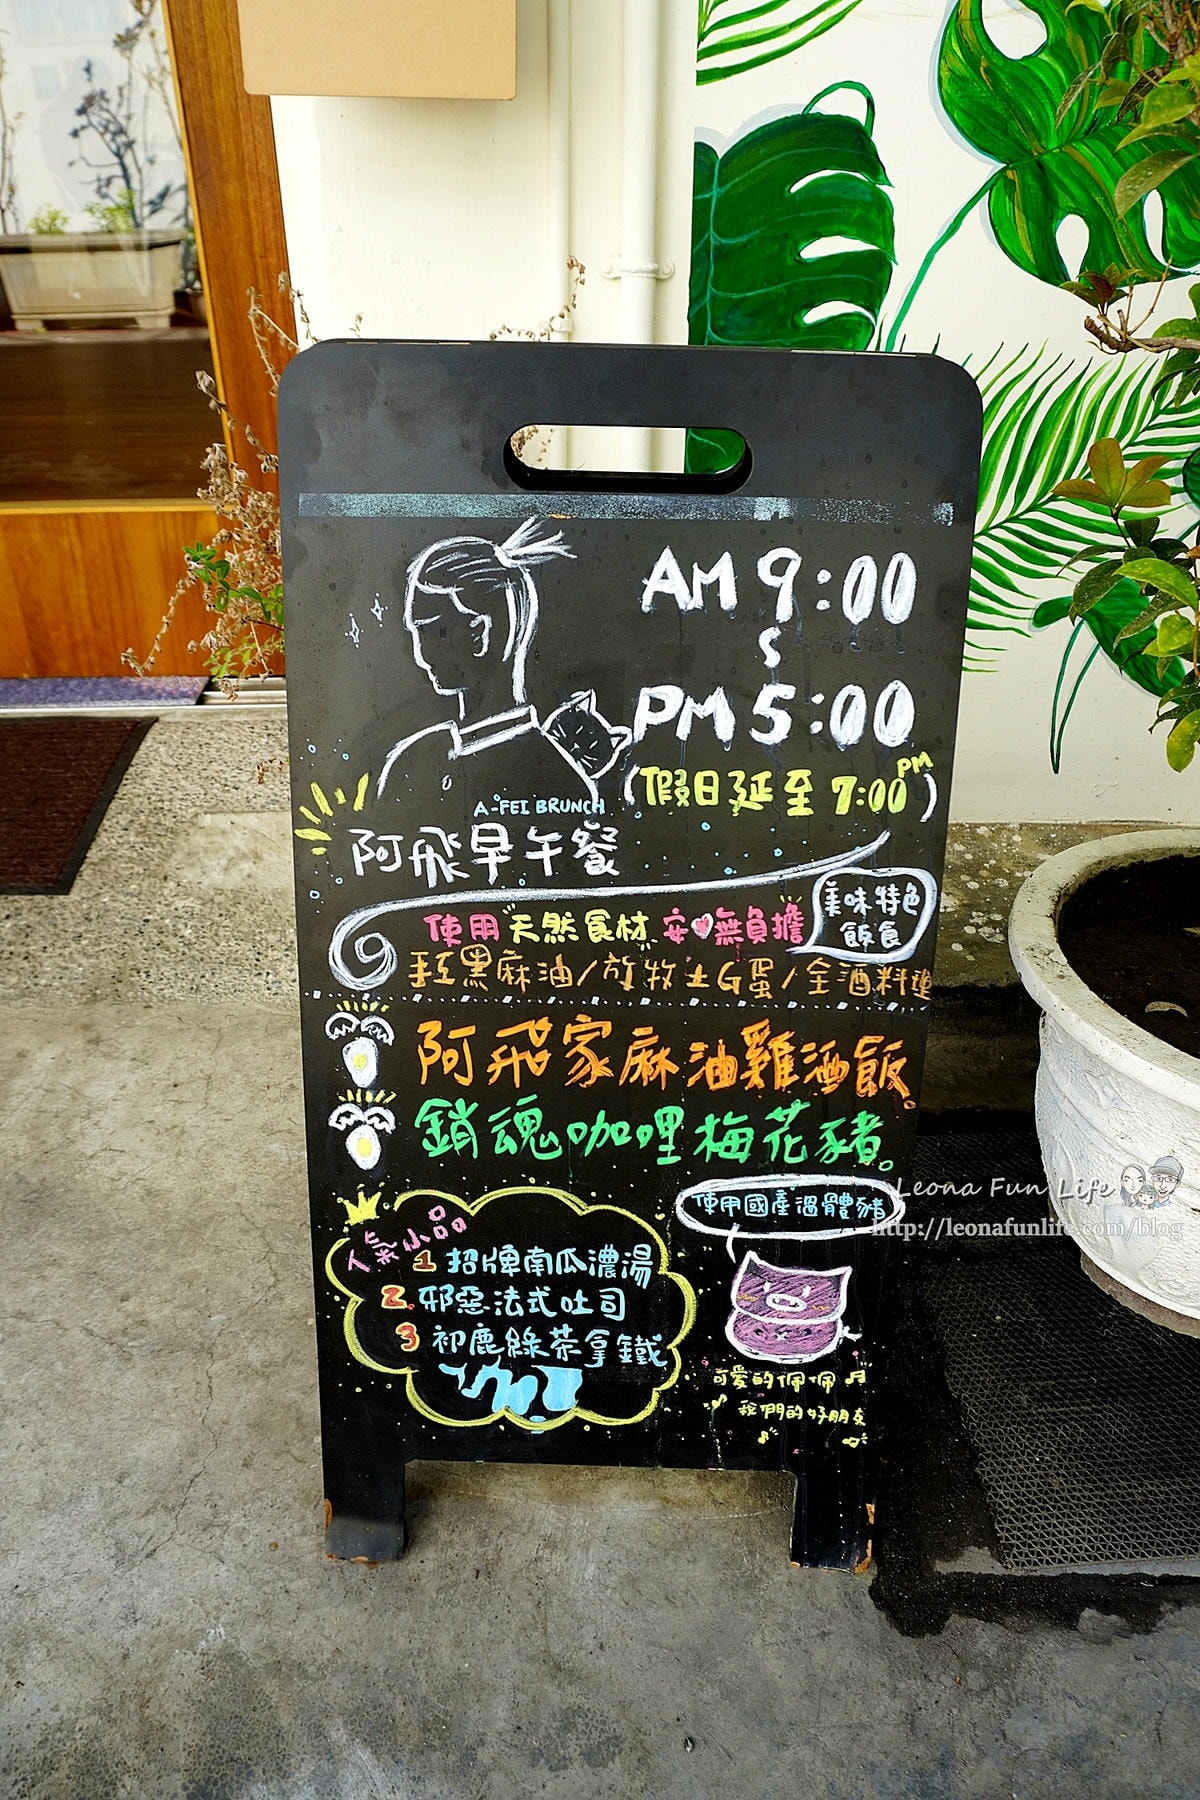 AM 9:00
S
PM 5:00
(假日延至 7:00 PM)
A-FEI BRUNCH
阿飛早午餐
美味特色
飯食
使用天然食材 安♥無負擔
黑麻油/放牧土G蛋/全酒料理
阿飛家麻油雞酒飯。
銷魂咖哩梅花豬。
使用國產溫體豬
人氣小品
1 招牌南瓜濃湯
2. 邪惡法式吐司
3 初鹿綠茶拿鐵
可愛的佩佩♬
我們的好朋友
Leona Fun Life
http://leonafunlife.com/blog